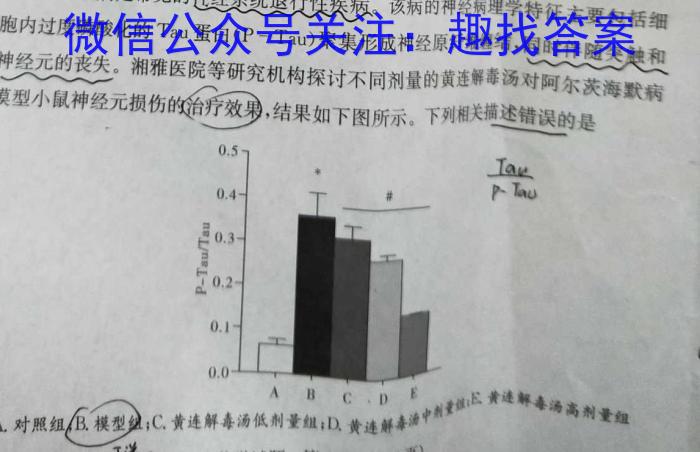 神经系统退行性疾病。该病的神经病理学特征主要包括细
胞内过度磷酸化的Tau蛋白
微信公众号关注：趣找答案
神经元的丧失。湘雅医院等研究机构探讨不同剂量的黄连解毒汤对阿尔茨海默病
模型小鼠神经元损伤的治疗效果,结果如下图所示。下列相关描述错误的是
Tau
P-Tau
P-Tau/Tau
0.5
0.4
0.3
0.2
0.1
0.0
*
#
A B C D E
A. 对照组;B. 模型组;C. 黄连解毒汤低剂量组;D. 黄连解毒汤中剂量组;E. 黄连解毒汤高剂量组